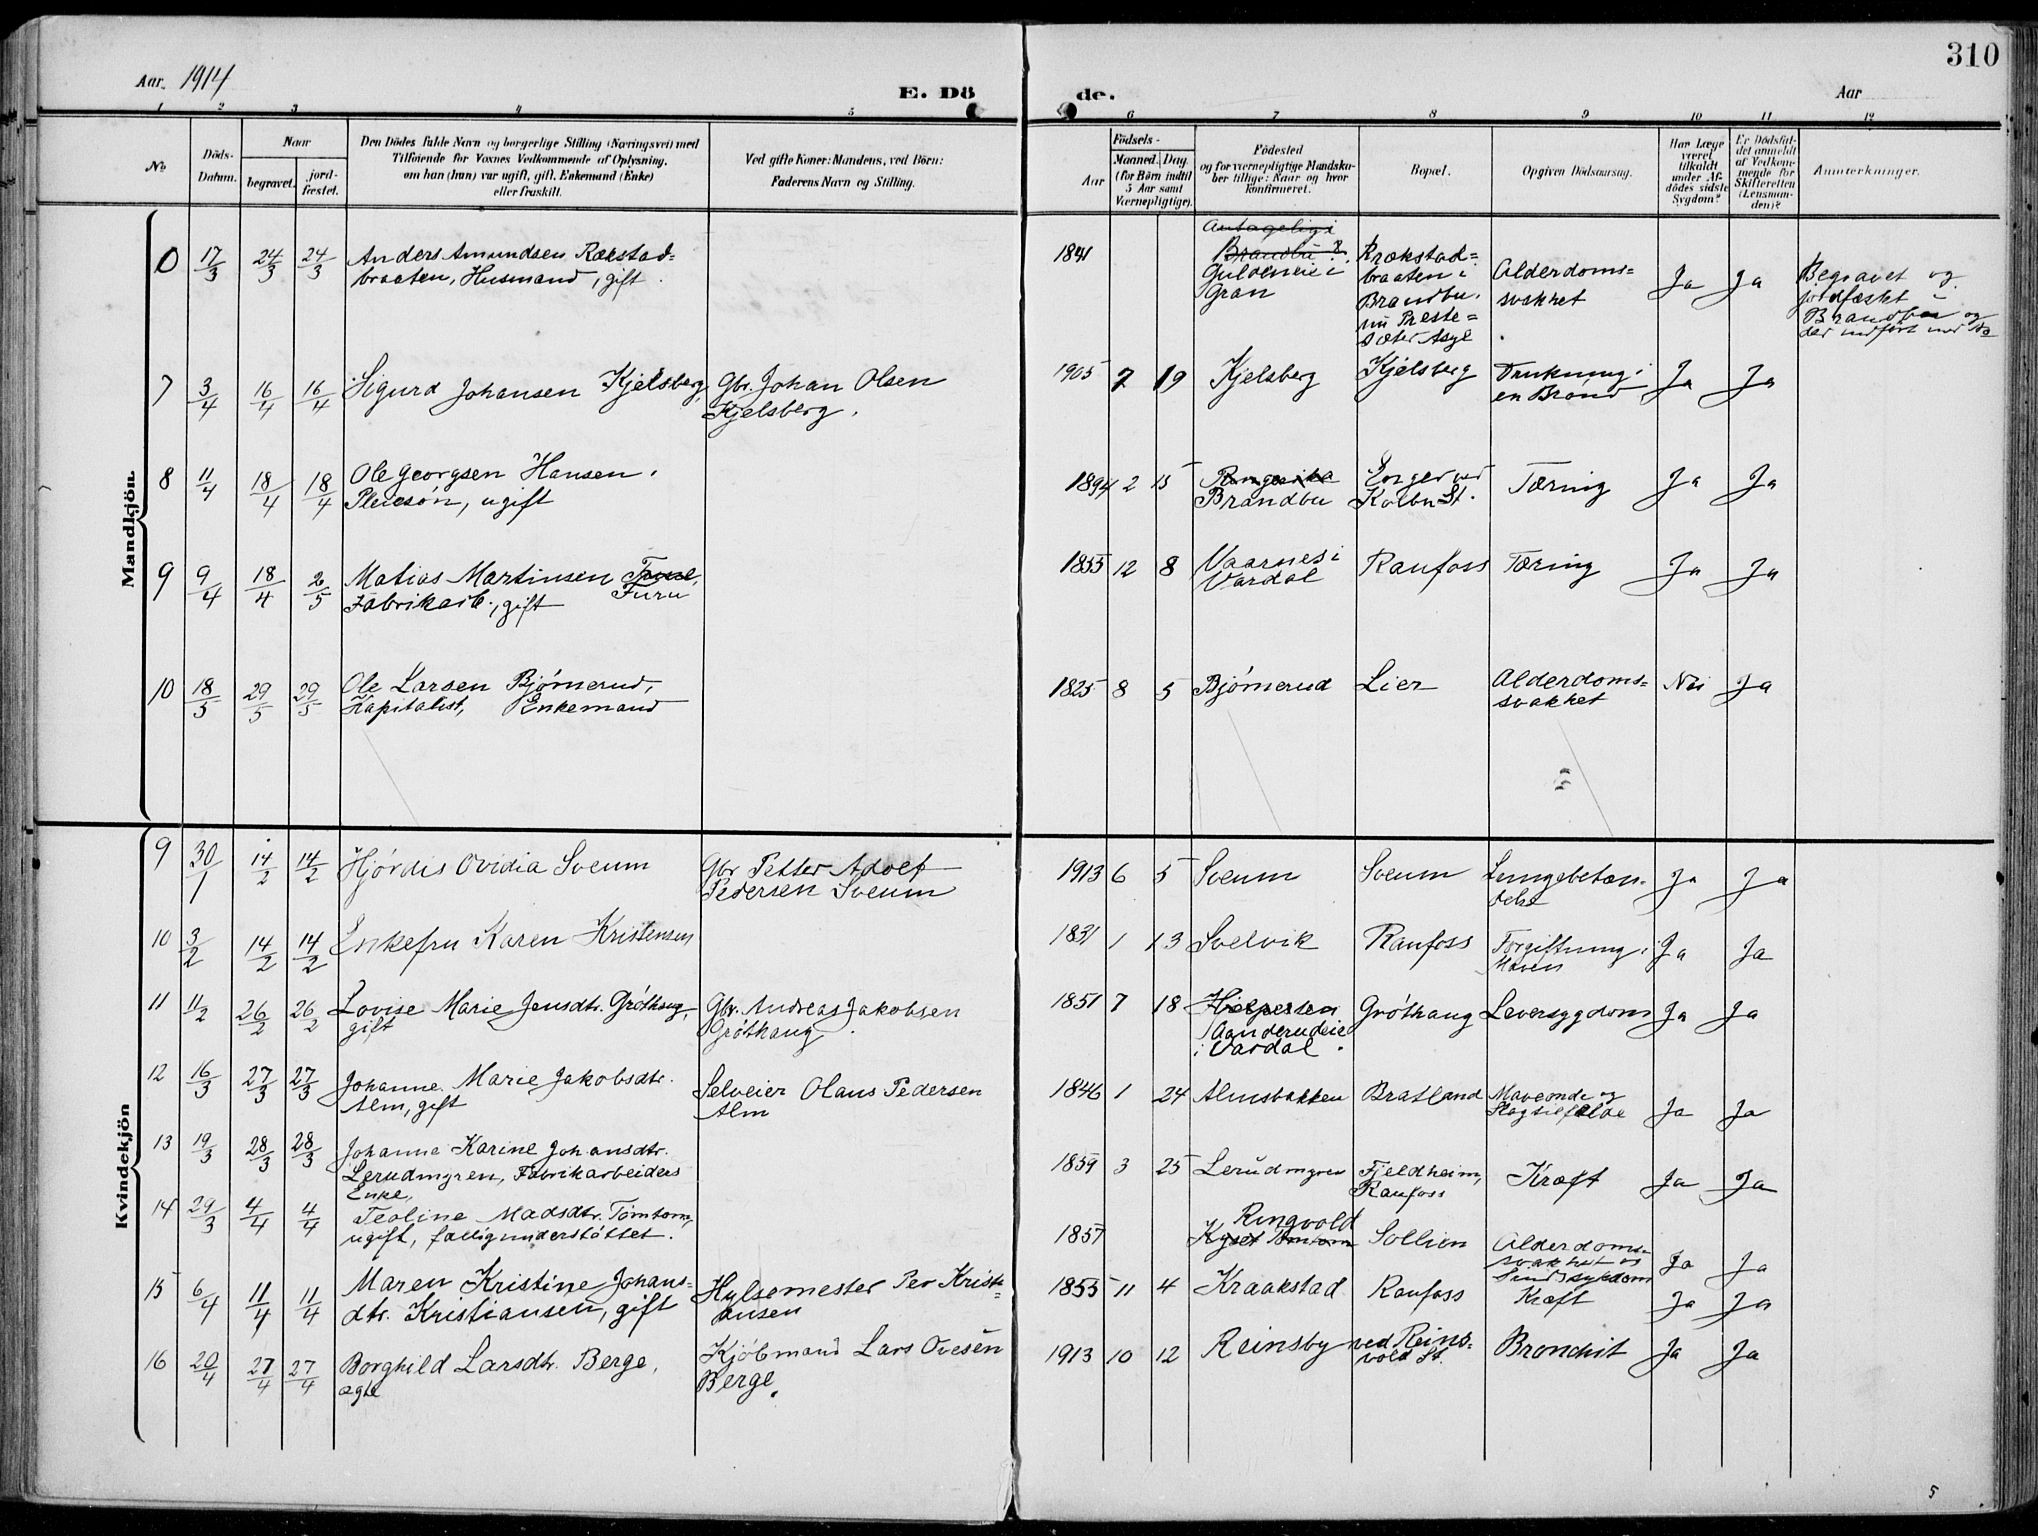 310
Aar 1914
E. Dö de.
Aar
1 2 3 4 5 6 7 8 9 10 11 12
No.
Döds-
Datum.
Naar
begravet.
jord-
fæstet.
Den Dödes fulde Navn og borgerlige Stilling (Næringsvei) med
Tilföiende for Voxnes Vedkommende af Oplysning,
om han (hun) var ugift, gift, Enkemand (Enke)
eller fraskilt.
Ved gifte Koner: Mandens, ved Börn:
Faderens Navn og Stilling.
Födsels-
Aar
Maaned. Dag
(for Börn indtil
5 Aar samt
Værnepligtige).
Födested
og for værnepligtige Mandska-
ber tillige: Naar og hvor
konfirmeret.
Bopæl.
Opgiven Dödsaarsag.
Har Læge
været
tilkaldt
under Af-
dödes sidste
Sygdom?
Er Dödsfal-
det anmeldt
af Vedkom-
mende for
Skifteretten
(Lensman-
den)?
Anmærkninger.
Mandkjön.
17/3 24/3 24/3 Anders Amundsen Rækstad-
braaten, Husmand, gift.
1841
Antagelig i
Brandbu?
Guldeneie i
Gran
Rækstad-
braaten i
Brandbu.
nu Preste-
sæter Asyl
Alderdoms-
svakhet
Ja Ja
Begravet og
jordfæstet i
Brandbu og
der indført med No
7 3/4 16/4 16/4 Sigurd Johansen Kjelsberg, Gbr. Johan Olsen
Kjelsberg.
1905 7 19 Kjelsberg Kjelsberg Drukning i
en Brønd Ja Ja
8 11/4 18/4 18/4 Ole Georgsen Hansen,
Pleiesøn, ugift
1894 2 15 Ringerike
Brandbu
Enger ved
Kolbu St.
Tæring Ja Ja
9 9/4 18/4 2/5 Matias Martinsen
Fabrikarb., gift Furu
1855 12 8 Vaarnes i
Vardal
Raufoss Tæring Ja Ja
10 18/5 29/5 29/5 Ole Larsen Bjørnerud,
Kapitalist, Enkemand
1825 8 5 Bjørnerud Lier Alderdoms-
svakhet Nei Ja
Kvindekjön
9 30/1 14/2 14/2 Hjørdis Ovidia Sveum Gbr. Petter Adolf
Pedersen Sveum
1913 6 5 Sveum Sveum Lungebetæn-
delse Ja Ja
10 3/2 14/2 14/2 Enkefru Karen Kristensen
1831 1 13 Svelvik Raufoss Forgiftning i
Maven Ja Ja
11 11/2 26/2 26/2 Lovise Marie Jensdtr. Grøthaug,
gift
Gbr. Andreas Jakobsen
Grøthaug.
1851 7 18
Aanderudeie
i Vardal.
Grøthaug Leversygdom Ja Ja
12 16/3 27/3 27/3 Johanne Marie Jakobsdtr.
Alm, gift
Selveier Olaus Pedersen
Alm
1846 1 24 Almsbakken Bratland Maveonde og
Slagtilfælde Ja Ja
13 19/3 28/3 28/3 Johanne Karine Johansdtr.
Lerudmyren, Fabrikarbeiders
Enke,
1859 3 25 Lerudmyren Fjeldheim,
Raufoss Kræft Ja Ja
14 29/3 4/4 4/4 Teoline Madsdtr. Tømten,
ugift, fattigunderstøttet.
1857 Ringvold
Sollien Alderdoms-
svakhet og
Sindssykdom Ja Ja
15 6/4 11/4 11/4 Maren Kristine Johans-
dtr. Kristiansen, gift
Hylsemester Per Kristi-
ansen
1855 11 4 Kraakstad Raufoss Kræft Ja Ja
16 20/4 27/4 27/4 Borghild Larsdtr. Berge,
ægte
Kjøbmand Lars Ovesen
Berge.
1913 10 12 Reinsby ved Reins-
vold St. Bronchit Ja Ja
5